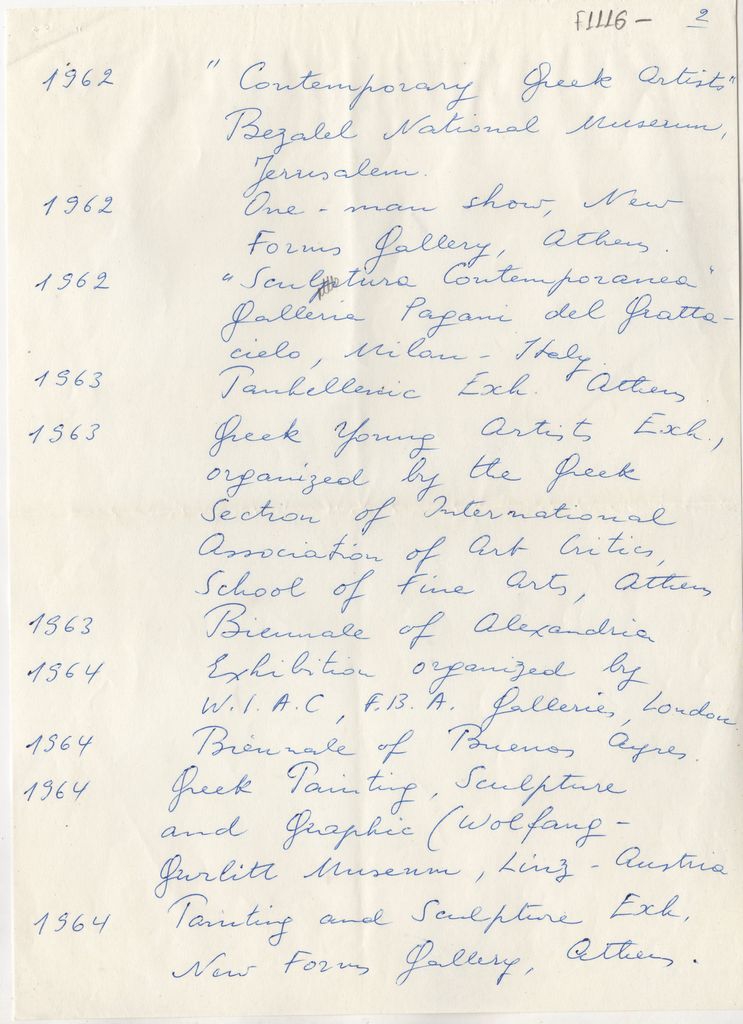 F1116 - 2
1962 "Contemporary Greek Artists"
Bezalel National Museum,
Jerusalem.
1962 One-man show, New
Forms Gallery, Athens.
1962 "Sculptura Contemporanea"
Galleria Pagani del Gratta-
cielo, Milan - Italy.
1963 Panhellenic Exh. Athens.
1963 Greek Young Artists Exh.,
organized by the Greek
Section of International
Association of Art Critics,
School of Fine Arts, Athens
1963 Biennale of Alexandria
1964 Exhibition organized by
W.I.A.C, F.B.A. Galleries, London
1964 Biennale of Buenos Ayres.
1964 Greek Painting, Sculpture
and Graphic (Wolfang-
Gurlitt Museum, Linz - Austria
1964 Painting and Sculpture Exh.
New Forms Gallery, Athens.